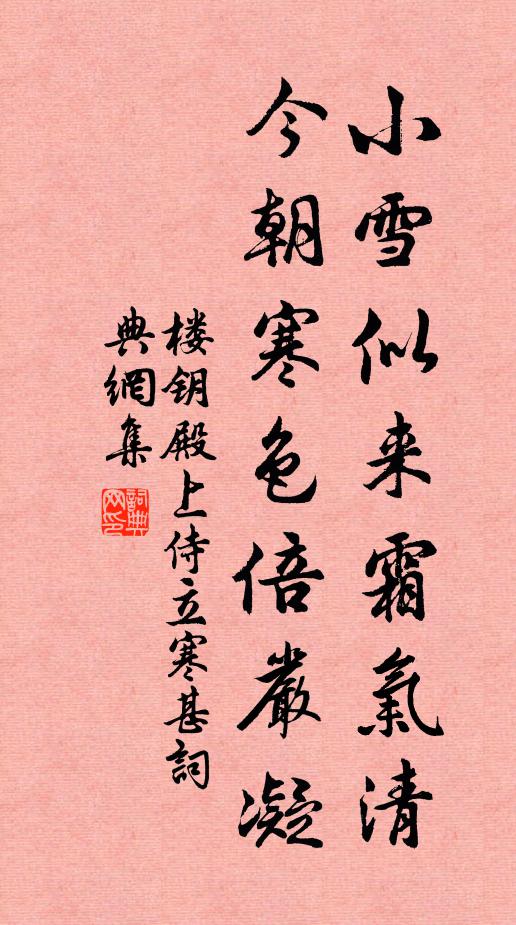 小雪似来霜氣清
今朝寒色倍嚴凝
楼钥殿上侍立寒甚詞
典網集
詞典
网印